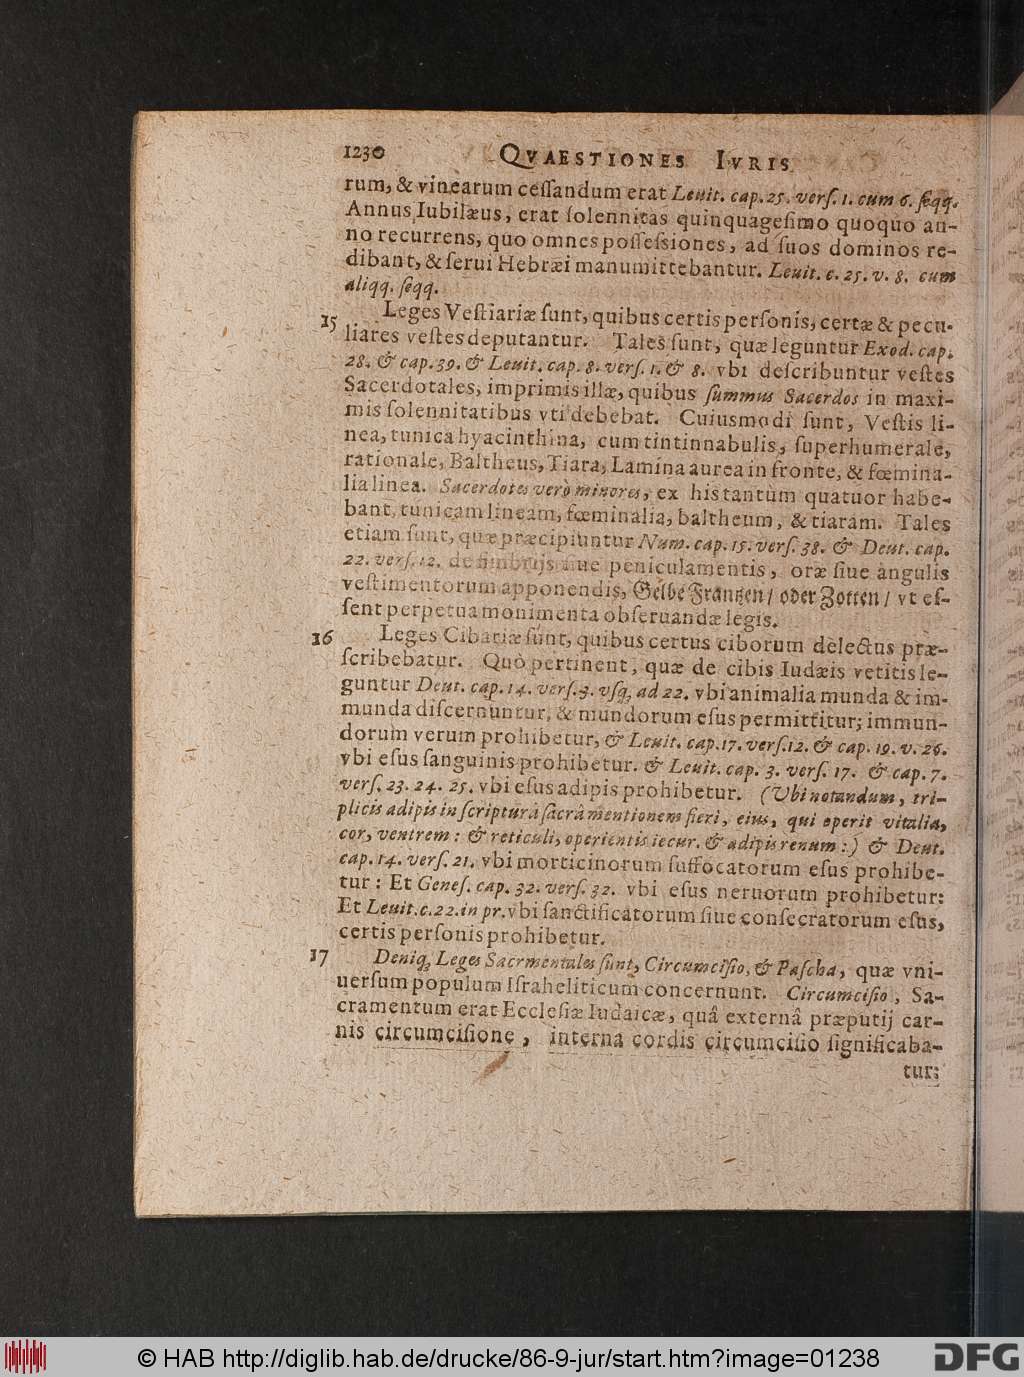 1230 QVAESTIONES IVRIS
rum, & vinearum ceſſandum erat Leuit. cap. 25. verſ. 1. cum 6. ſeqq.
Annus Iubilæus, erat ſolennitas quinquageſimo quoquo an-
no recurrens, quo omnes poſſeſsiones, ad ſuos dominos re-
dibant, & ſerui Hebræi manumittebantur. Leuit. c. 25. v. 8. cum
aliqq. ſeqq.
15 Leges Veſtiariæ ſunt, quibus certis perſonis, certæ & pecu-
liares veſtes deputantur. Tales ſunt, quæ leguntur Exod. cap.
28. & cap. 39. & Leuit. cap. 8. verſ. 1. & 8. vbi deſcribuntur veſtes
Sacerdotales, imprimis illæ, quibus ſummus Sacerdos in maxi-
mis ſolennitatibus vti debebat. Cuiusmodi ſunt, Veſtis li-
nea, tunica hyacinthina, cum tintinnabulis, ſuperhumerale,
rationale, Baltheus, Tiara, Lamina aurea in fronte, & fœmina-
lia linea. Sacerdotes verò minores, ex his tantùm quatuor habe-
bant, tunicam lineam, fœminalia, baltheum, & tiaram. Tales
etiam ſunt, quæ præcipiuntur Num. cap. 15. verſ. 38. & Deut. cap.
22. verſ. 12. de fimbrijs ſiue peniculamentis, oræ ſiue angulis
veſtimentorum apponendis, Gelbe Frantzen / oder Zotten / vt eſ-
ſent perpetua monimenta obſeruandæ legis.
16 Leges Cibariæ ſunt, quibus certus ciborum delectus præ-
ſcribebatur. Quò pertinent, quæ de cibis Iudæis vetitis le-
guntur Deut. cap. 14. verſ. 3. vſq; ad 22. vbi animalia munda & im-
munda diſcernuntur, & mundorum eſus permittitur; immun-
dorum verum prohibetur, & Leuit. cap. 17. verſ. 12. & cap. 19. v. 26.
vbi eſus ſanguinis prohibetur. & Leuit. cap. 3. verſ. 17. & cap. 7.
verſ. 23. 24. 25. vbi eſus adipis prohibetur. (Vbi notandum, tri-
plicis adipis in ſcripturâ ſacrâ mentionem fieri, eius, qui operit vitalia,
cor, ventrem: & reticuli, operientis iecur. & adipis renum:) & Deut.
cap. 14. verſ. 21. vbi morticinorum ſuffocatorum eſus prohibe-
tur: Et Geneſ. cap. 32. verſ. 32. vbi eſus neruorum prohibetur:
Et Leuit. c. 22. in pr. vbi ſanctificatorum ſiue conſecratorum eſus,
certis perſonis prohibetur.
17 Deniq; Leges Sacrmentales ſunt, Circumciſio, & Paſcha, quæ vni-
uerſum populum Iſraheliticum concernunt. Circumciſio, Sa-
cramentum erat Eccleſiæ Iudaicæ, quâ externâ præputij car-
nis circumciſione, interna cordis circumciſio ſignificaba-
tur:
© HAB http://diglib.hab.de/drucke/86-9-jur/start.htm?image=01238
DFG